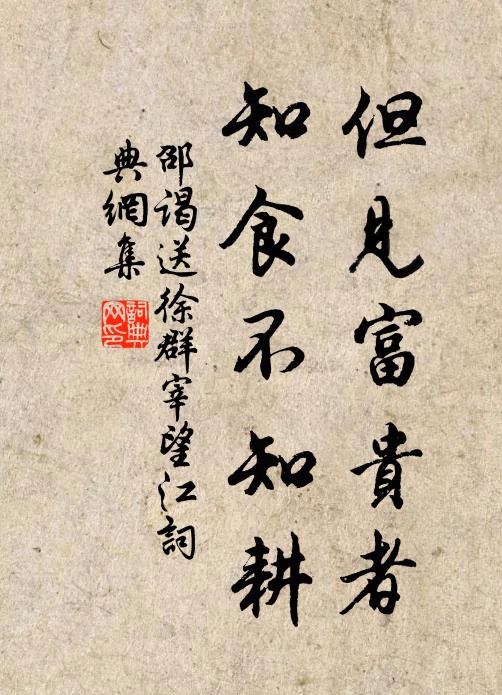 但見富貴者
知食不知耕
邵謁送徐群宰望江詞
典網集
詞典
网印